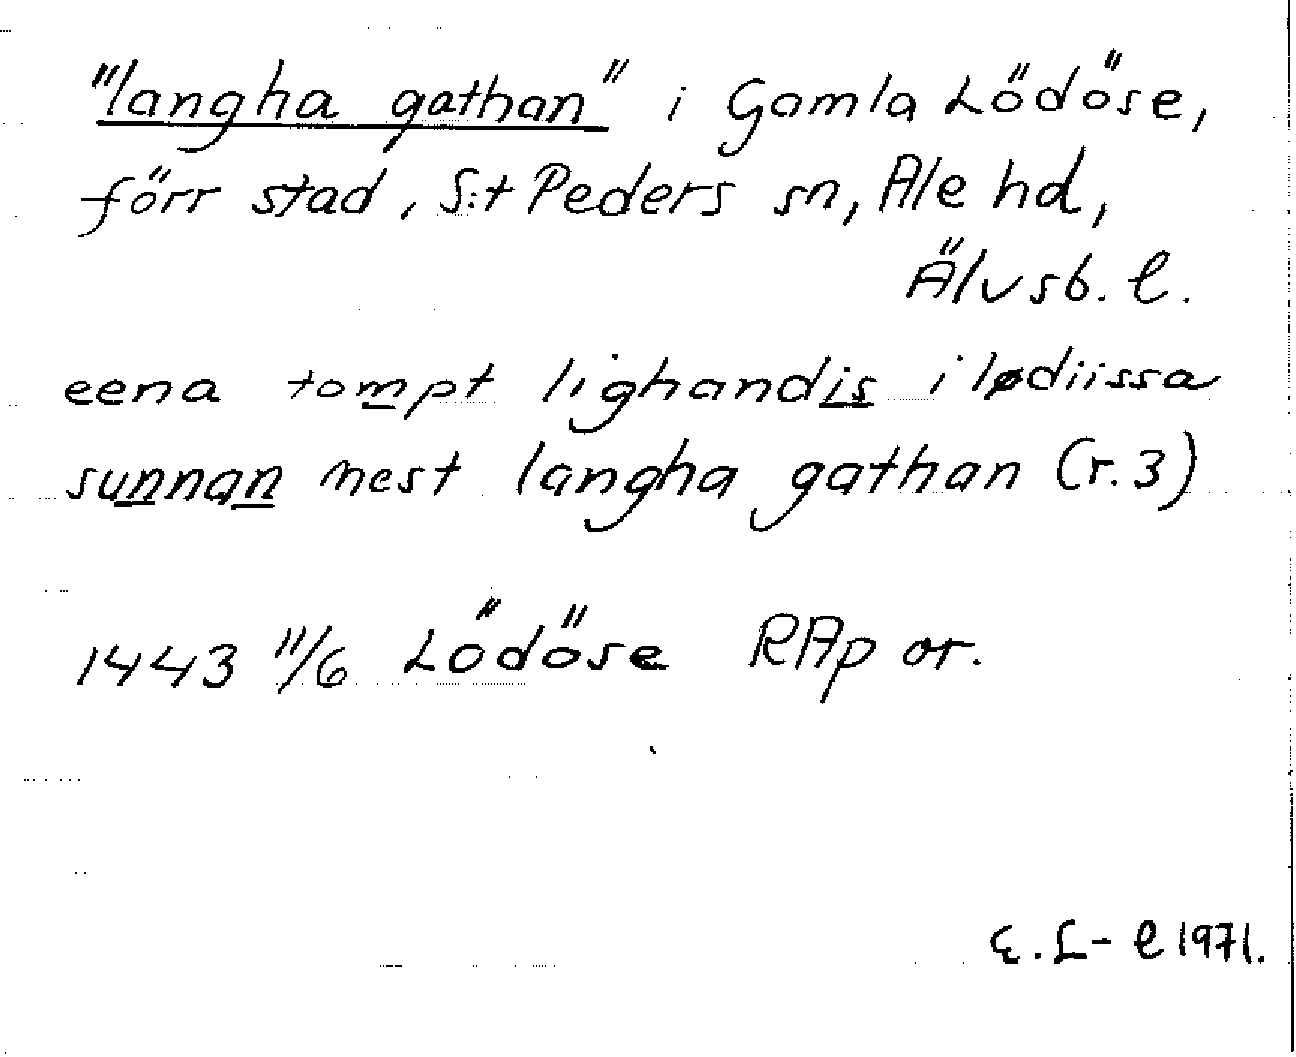 "langha gathan" i Gamla Lödöse,
förr stad, S:t Peders sn, Ale hd,
Älvsb. l.
eena tompt lighandis i lødiissa
sunnan nest langha gathan (r. 3)
1443 11/6 Lödöse RAp or.
E. L-l 1971.